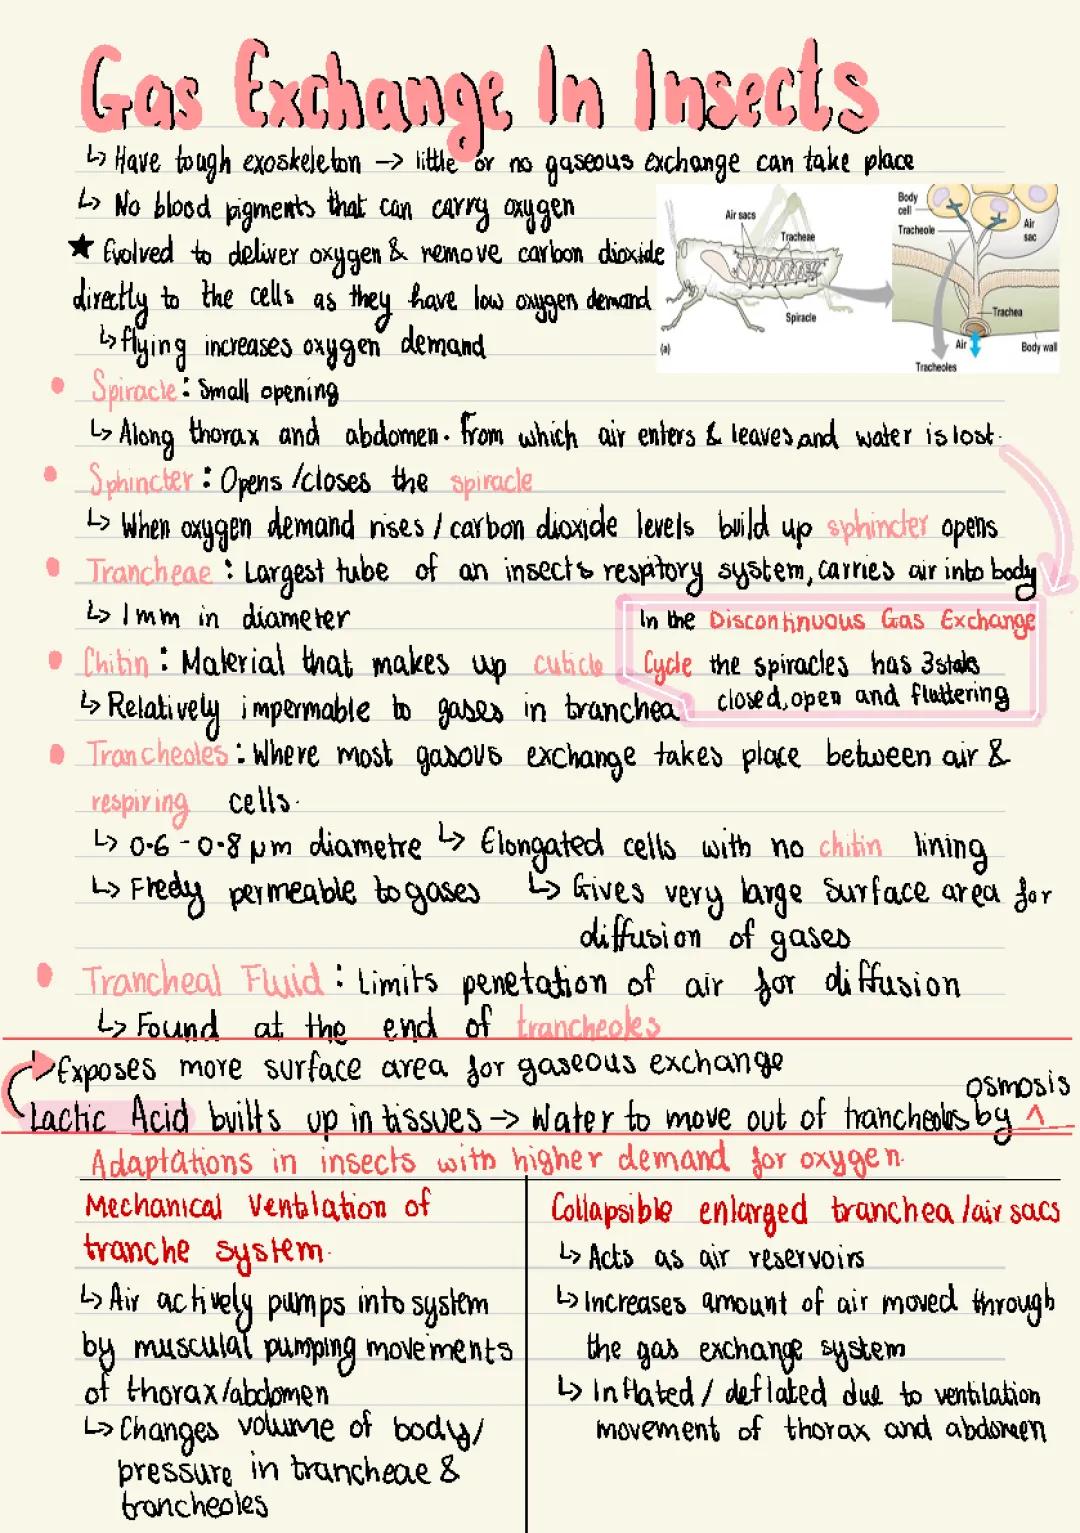 Gas Exchange In Insects
↳ Have tough exoskeleton → little or no gaseous exchange can take place
↳ No blood pigments that can carry oxygen
★ Evolved to deliver oxygen & remove carbon dioxide
directly to the cells as they have low oxygen demand
↳ flying increases oxygen demand
Air sacs
Tracheae
Spiracle
(a)
Body cell
Tracheole
Air sac
Trachea
Air
Body wall
Tracheoles
• Spiracle: Small opening
↳ Along thorax and abdomen. From which air enters & leaves, and water is lost.
• Sphincter: Opens /closes the spiracle
↳ When oxygen demand rises / carbon dioxide levels build up sphincter opens
• Trancheae: Largest tube of an insects respitory system, carries air into body
↳ 1mm in diameter
In the Discontinuous Gas Exchange
Cycle the spiracles has 3 states
closed, open and fluttering
• Chitin: Material that makes up cuticle
↳ Relatively impermable to gases in tranchea
• Trancheoles: Where most gasous exchange takes place between air &
respiring cells.
↳ 0.6 - 0.8 µm diametre ↳ Elongated cells with no chitin lining
↳ Freely permeable to gases ↳ Gives very large surface area for
diffusion of gases
• Trancheal Fluid: Limits penetation of air for diffusion
↳ Found at the end of trancheoles
↳ Exposes more surface area for gaseous exchange
Lactic Acid builts up in tissues → Water to move out of trancheoles by ^ osmosis
Adaptations in insects with higher demand for oxygen.
Mechanical Ventilation of
tranche system.
↳ Air actively pumps into system
by musculat pumping movements
of thorax/abdomen
↳ Changes volume of body/
pressure in trancheae &
trancheoles
Collapsible enlarged tranchea /air sacs
↳ Acts as air reservoirs
↳ Increases amount of air moved through
the gas exchange system
↳ Inflated / deflated due to ventilation
movement of thorax and abdomen